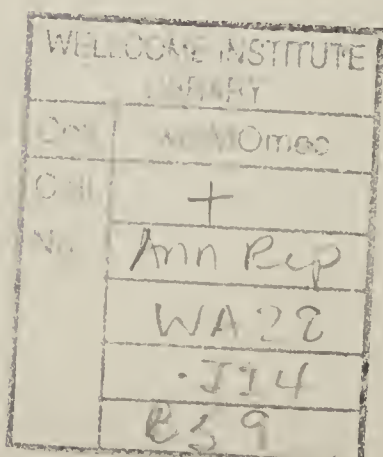 WELLCOME INSTITUTE
LIBRARY
Coll. welMOmec
Call
+
No.
Ann Rep
WA28
.JI4